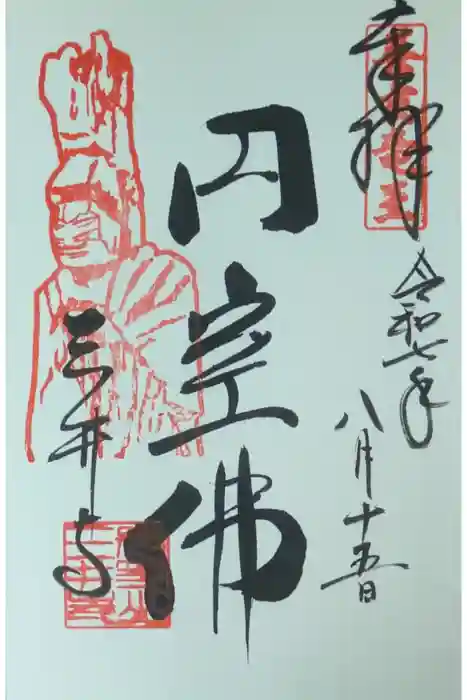 奉拝
令和七年
八月十五日
円空佛
三井寺